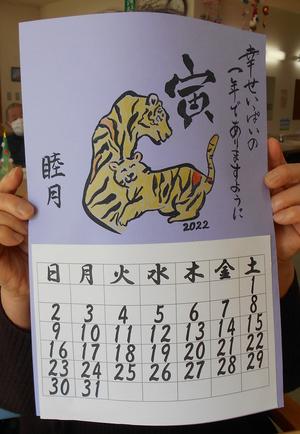 幸せいっぱいの
一年でありますように
寅
睦月
2022
日 月 火 水 木 金 土
1
2 3 4 5 6 7 8
9 10 11 12 13 14 15
16 17 18 19 20 21 22
23 24 25 26 27 28 29
30 31